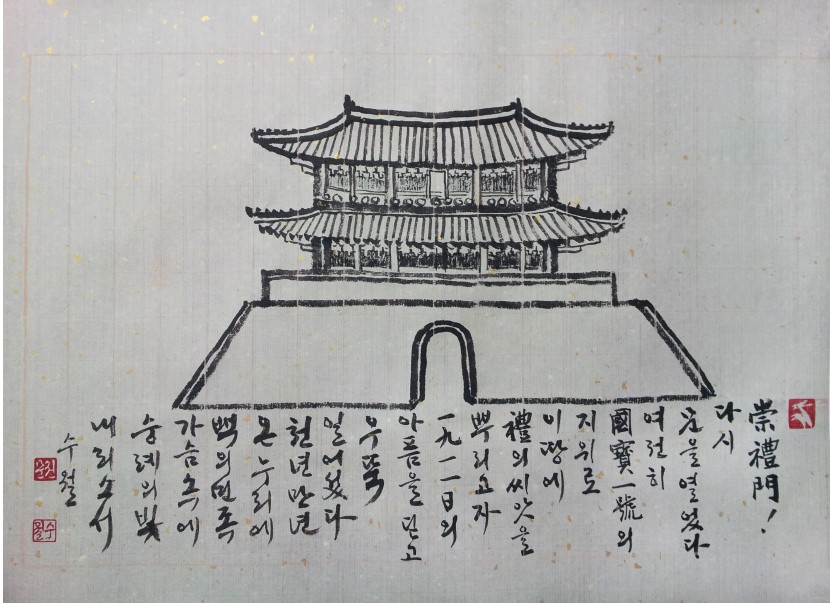 崇禮門!
다시
문을 열었다
여전히
國寶一號의
지위로
이 땅에
禮의 씨앗을
뿌리고자
一九一一日의
아픔을 딛고
우뚝
일어섰다
천년만년
온누리에
백의민족
가슴속에
숭례의 빛
내리소서
수월